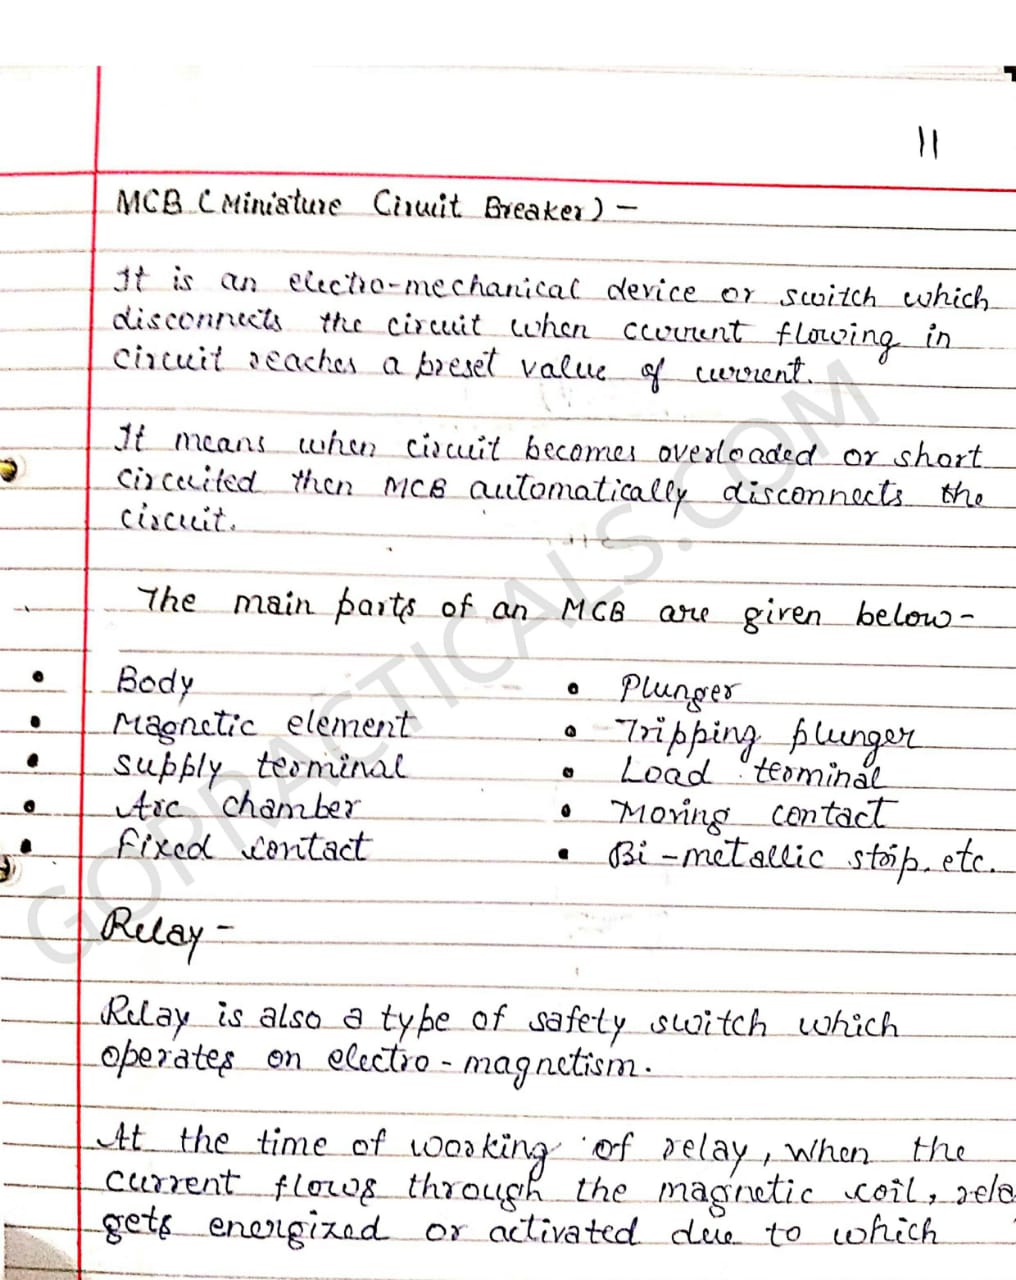 11
MCB (Miniature Circuit Breaker) -
It is an electro-mechanical device or switch which
disconnects the circuit when current flowing in
circuit reaches a preset value of current.
It means when circuit becomes overloaded or short
circuited then MCB automatically disconnects the
circuit.
The main parts of an MCB are given below-
• Body
• Magnetic element
• Supply terminal
• Arc chamber
• Fixed contact
• Plunger
• Tripping plunger
• Load terminal
• Moving contact
• Bi-metallic strip. etc.
Relay -
Relay is also a type of safety switch which
operates on electro-magnetism.
At the time of working of relay, when the
current flows through the magnetic coil, rela
gets energized or activated due to which
GOPRACTICALS.COM